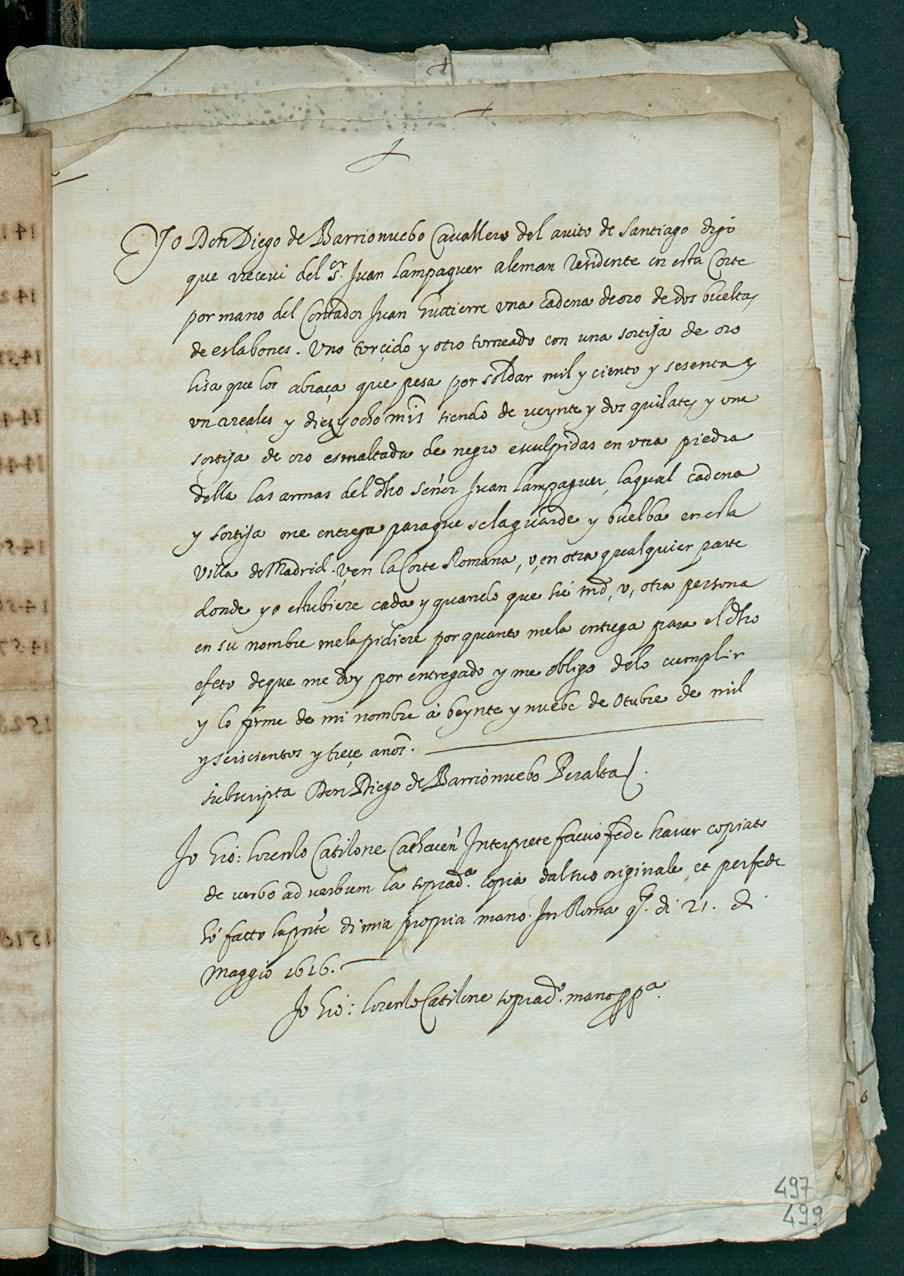 Yo Don Diego de Barrionuebo Cavallero del avito de Santiago digo
que recevi del sr. Juan Lampaguer aleman residente en esta Corte
por mano del Contador Juan Gutierre una cadena de oro de dos bueltas
de eslabones. Uno torçido y otro torneado con una sortija de oro
lisa que los abraça que pesa por soldar mil y ciento y sesenta y
un reales y diez y ocho mrs siendo de veynte y dos quilates y una
sortija de oro esmaltada de negro esculpidas en una piedra
della las armas del dho señor Juan Lampaguer, laqual cadena
y sortija me entrega paraque se la guarde y buelba en esta
villa de Madrid. v, en la Corte Romana, v, en otra qualquier parte
donde yo estubiere cada y quando que su md, v, otra persona
en su nombre mela pidiere por quanto mela entrega para el dho
efeto deque me doy por entregado y me obligo delo cumplir
y lo firme de mi nombre à beynte y nuebe de Otubre de mil
y seiscientos y treçe años.
subscripta Don Diego de Barrionuebo Peralta
Io Gio: Lorenzo Catilone Interprete faccio fede haver copiato
de verbo ad verbum la soprada. copia dal suo originale, et per fede
hò fatto la pnte di mia propria mano. In Roma qo. di 21. di
Maggio 1616.
Io Gio: Lorenzo Catilone soprado. mano ppa.
497
499